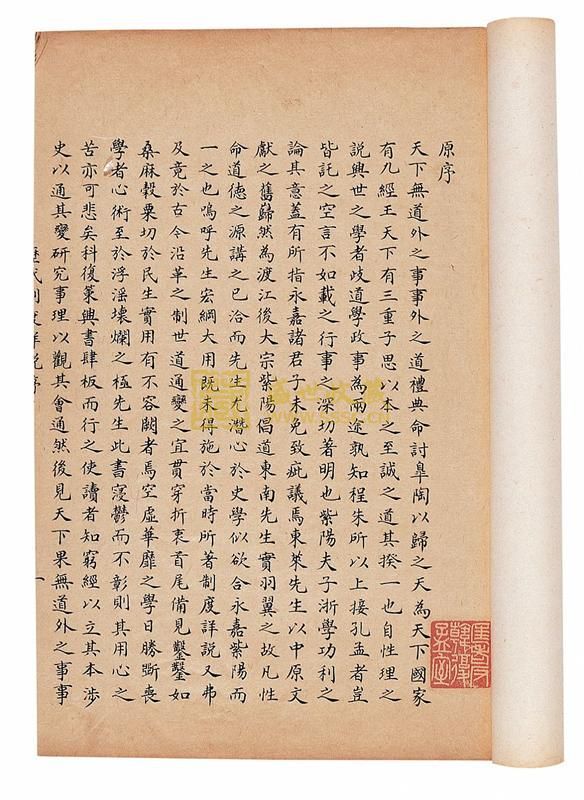 原序
天下無道外之事事外之道禮典命討皐陶以歸之天為天下國家
有九經王天下有三重子思以本之至誠之道其揆一也自性理之
說興世之學者歧道學政事為兩途孰知程朱所以上接孔孟者豈
皆託之空言不如載之行事之深切著明也紫陽夫子浙學功利之
論其意蓋有所指永嘉諸君子未免致疵議焉東萊先生以中原文
獻之舊歸然為渡江後大宗紫陽倡道東南先生實羽翼之故凡性
命道德之源講之已洽而先生尤潛心於史學似欲合永嘉紫陽而
一之也嗚呼先生宏綱大用既未得施於當時所著制度詳說又弗
及竟於古今沿革之制世道通變之宜貫穿折衷首尾備見鑿鑿如
桑麻穀粟切於民生實用有不容闕者焉空虛華靡之學日勝斲喪
學者心術至於浮淫壞爛之極先生此書寖鬱而不彰則其用心之
苦亦可悲矣科復策興書肆板而行之使讀者知窮經以立其本涉
史以通其變研究事理以觀其會通然後見天下果無道外之事事
歷代制度詳說序 一